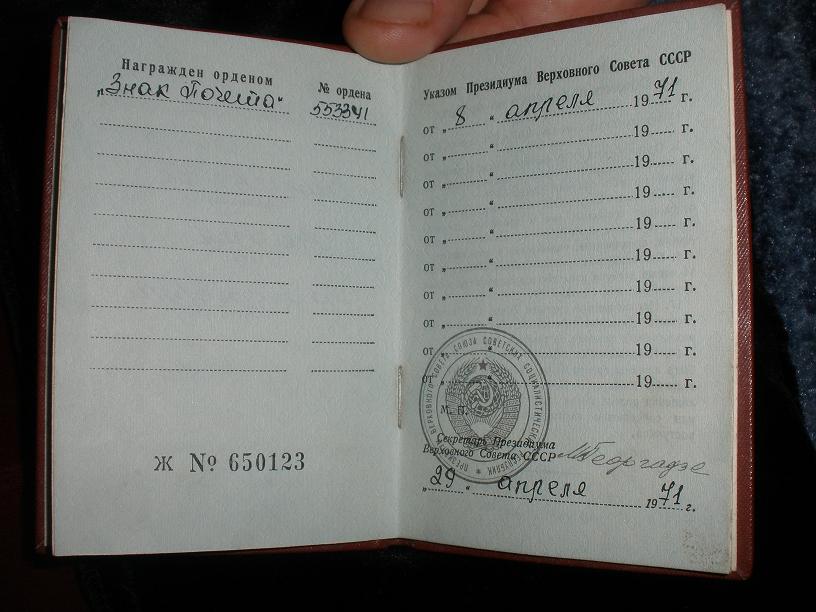 Награжден орденом
№ ордена
„Знак Почета“
553341
Ж № 650123
Указом Президиума Верховного Совета СССР
от „ 8 “ апреля 1971 г.
от „ “ 19 г.
от „ “ 19 г.
от „ “ 19 г.
от „ “ 19 г.
от „ “ 19 г.
от „ “ 19 г.
от „ “ 19 г.
от „ “ 19 г.
от „ “ 19 г.
М. П.
ВЕРХОВНОГО СОВЕТА СОЮЗА СОВЕТСКИХ СОЦИАЛИСТИЧЕСКИХ
Секретарь Президиума
Верховного Совета СССР МГеоргадзе
„29“ апреля 1971 г.